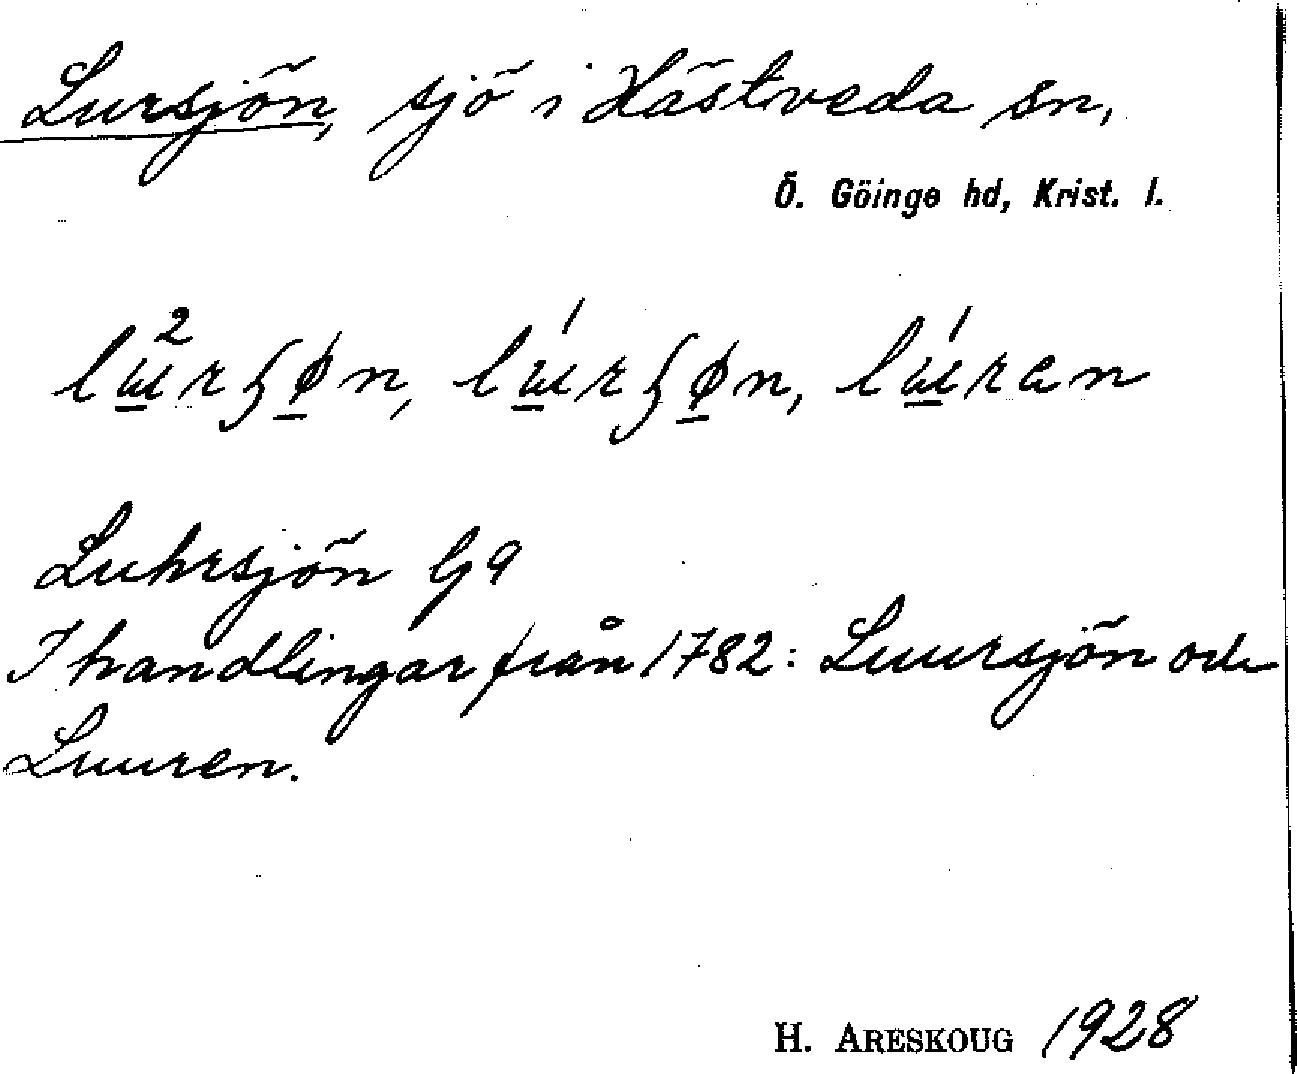 Lursjön, sjö i Hästveda sn,
Ö. Göinge hd, Krist. l.
Luhrsjön G a
I handlingar från 1782: Luursjön och
Luuren.
H. ARESKOUG 1928